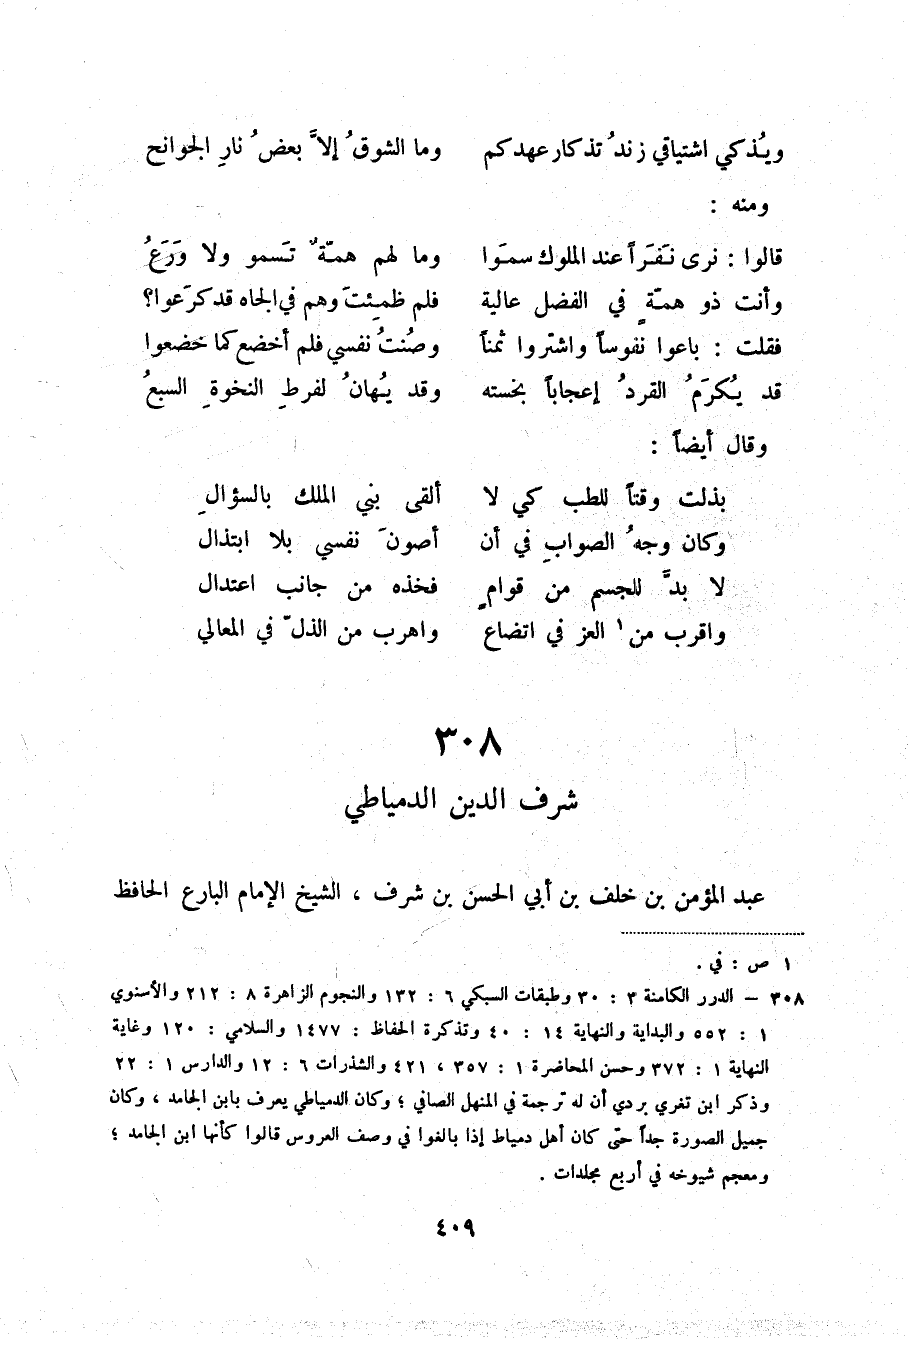 ويُذكي اشتياقي زندُ تذكار عهدكم وما الشوقُ إلاَّ بعضُ نارِ الجوانح
ومنه :
قالوا : نرى نَفَراً عند الملوك سمَوا وما لهم همّةٌ تَسمو ولا وَرَعُ
وأنت ذو همّةٍ في الفضل عالية فلم ظمِئتَ وهم في الجاه قد كرَعوا؟
فقلت : باعوا نفوساً واشتروا ثمناً وصُنتُ نفسي فلم أخضع كما خضعوا
قد يُكرَمُ القردُ إعجاباً بخسته وقد يُهانُ لفرطِ النخوةِ السبعُ
وقال أيضاً :
بذلت وقتاً للطب كي لا ألقى بني الملك بالسؤالِ
وكان وجهُ الصوابِ في أن أصونَ نفسي بلا ابتذال
لا بدَّ للجسم من قوامٍ فخذه من جانب اعتدال
واقرب من١ العز في اتضاع واهرب من الذلّ في المعالي
٣٠٨
شرف الدين الدمياطي
عبد المؤمن بن خلف بن أبي الحسن بن شرف ، الشيخ الإمام البارع الحافظ
١ ص : في .
٣٠٨ – الدرر الكامنة ٣ : ٣٠ وطبقات السبكي ٦ : ١٣٢ والنجوم الزاهرة ٨ : ٢١٢ والأسنوي
١ : ٥٥٢ والبداية والنهاية ١٤ : ٤٠ وتذكرة الحفاظ : ١٤٧٧ والسلامي : ١٢٠ وغاية
النهاية ١ : ٣٧٢ وحسن المحاضرة ١ : ٣٥٧ ، ٤٢١ والشذرات ٦ : ١٢ والدارس ١ : ٢٢
وذكر ابن تغري بردي أن له ترجمة في المنهل الصافي ؛ وكان الدمياطي يعرف بابن الجامد ، وكان
جميل الصورة جداً حتى كان أهل دمياط إذا بالغوا في وصف العروس قالوا كأنها ابن الجامد ؛
ومعجم شيوخه في أربع مجلدات .
٤٠٩